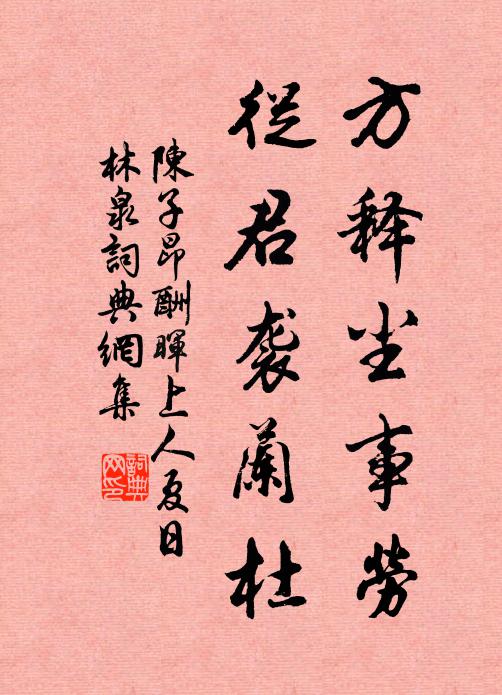 方释尘事劳
從君袭蘭杜
陳子昂酬暉上人夏日
林泉詞典網集
詞典网印